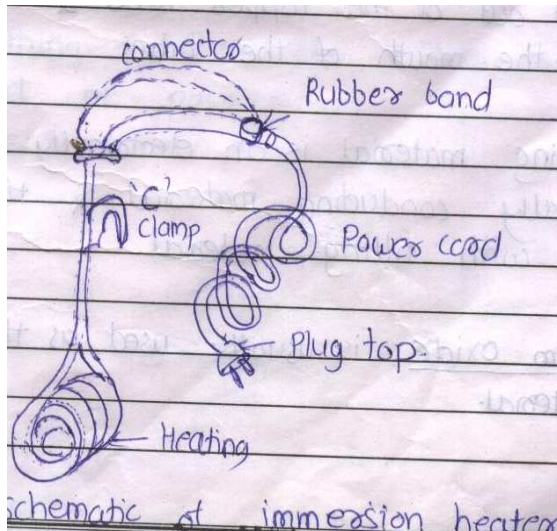 connector
Rubber band
'C'
clamp
Power cord
Plug top.
Heating
schematic of immersion heater